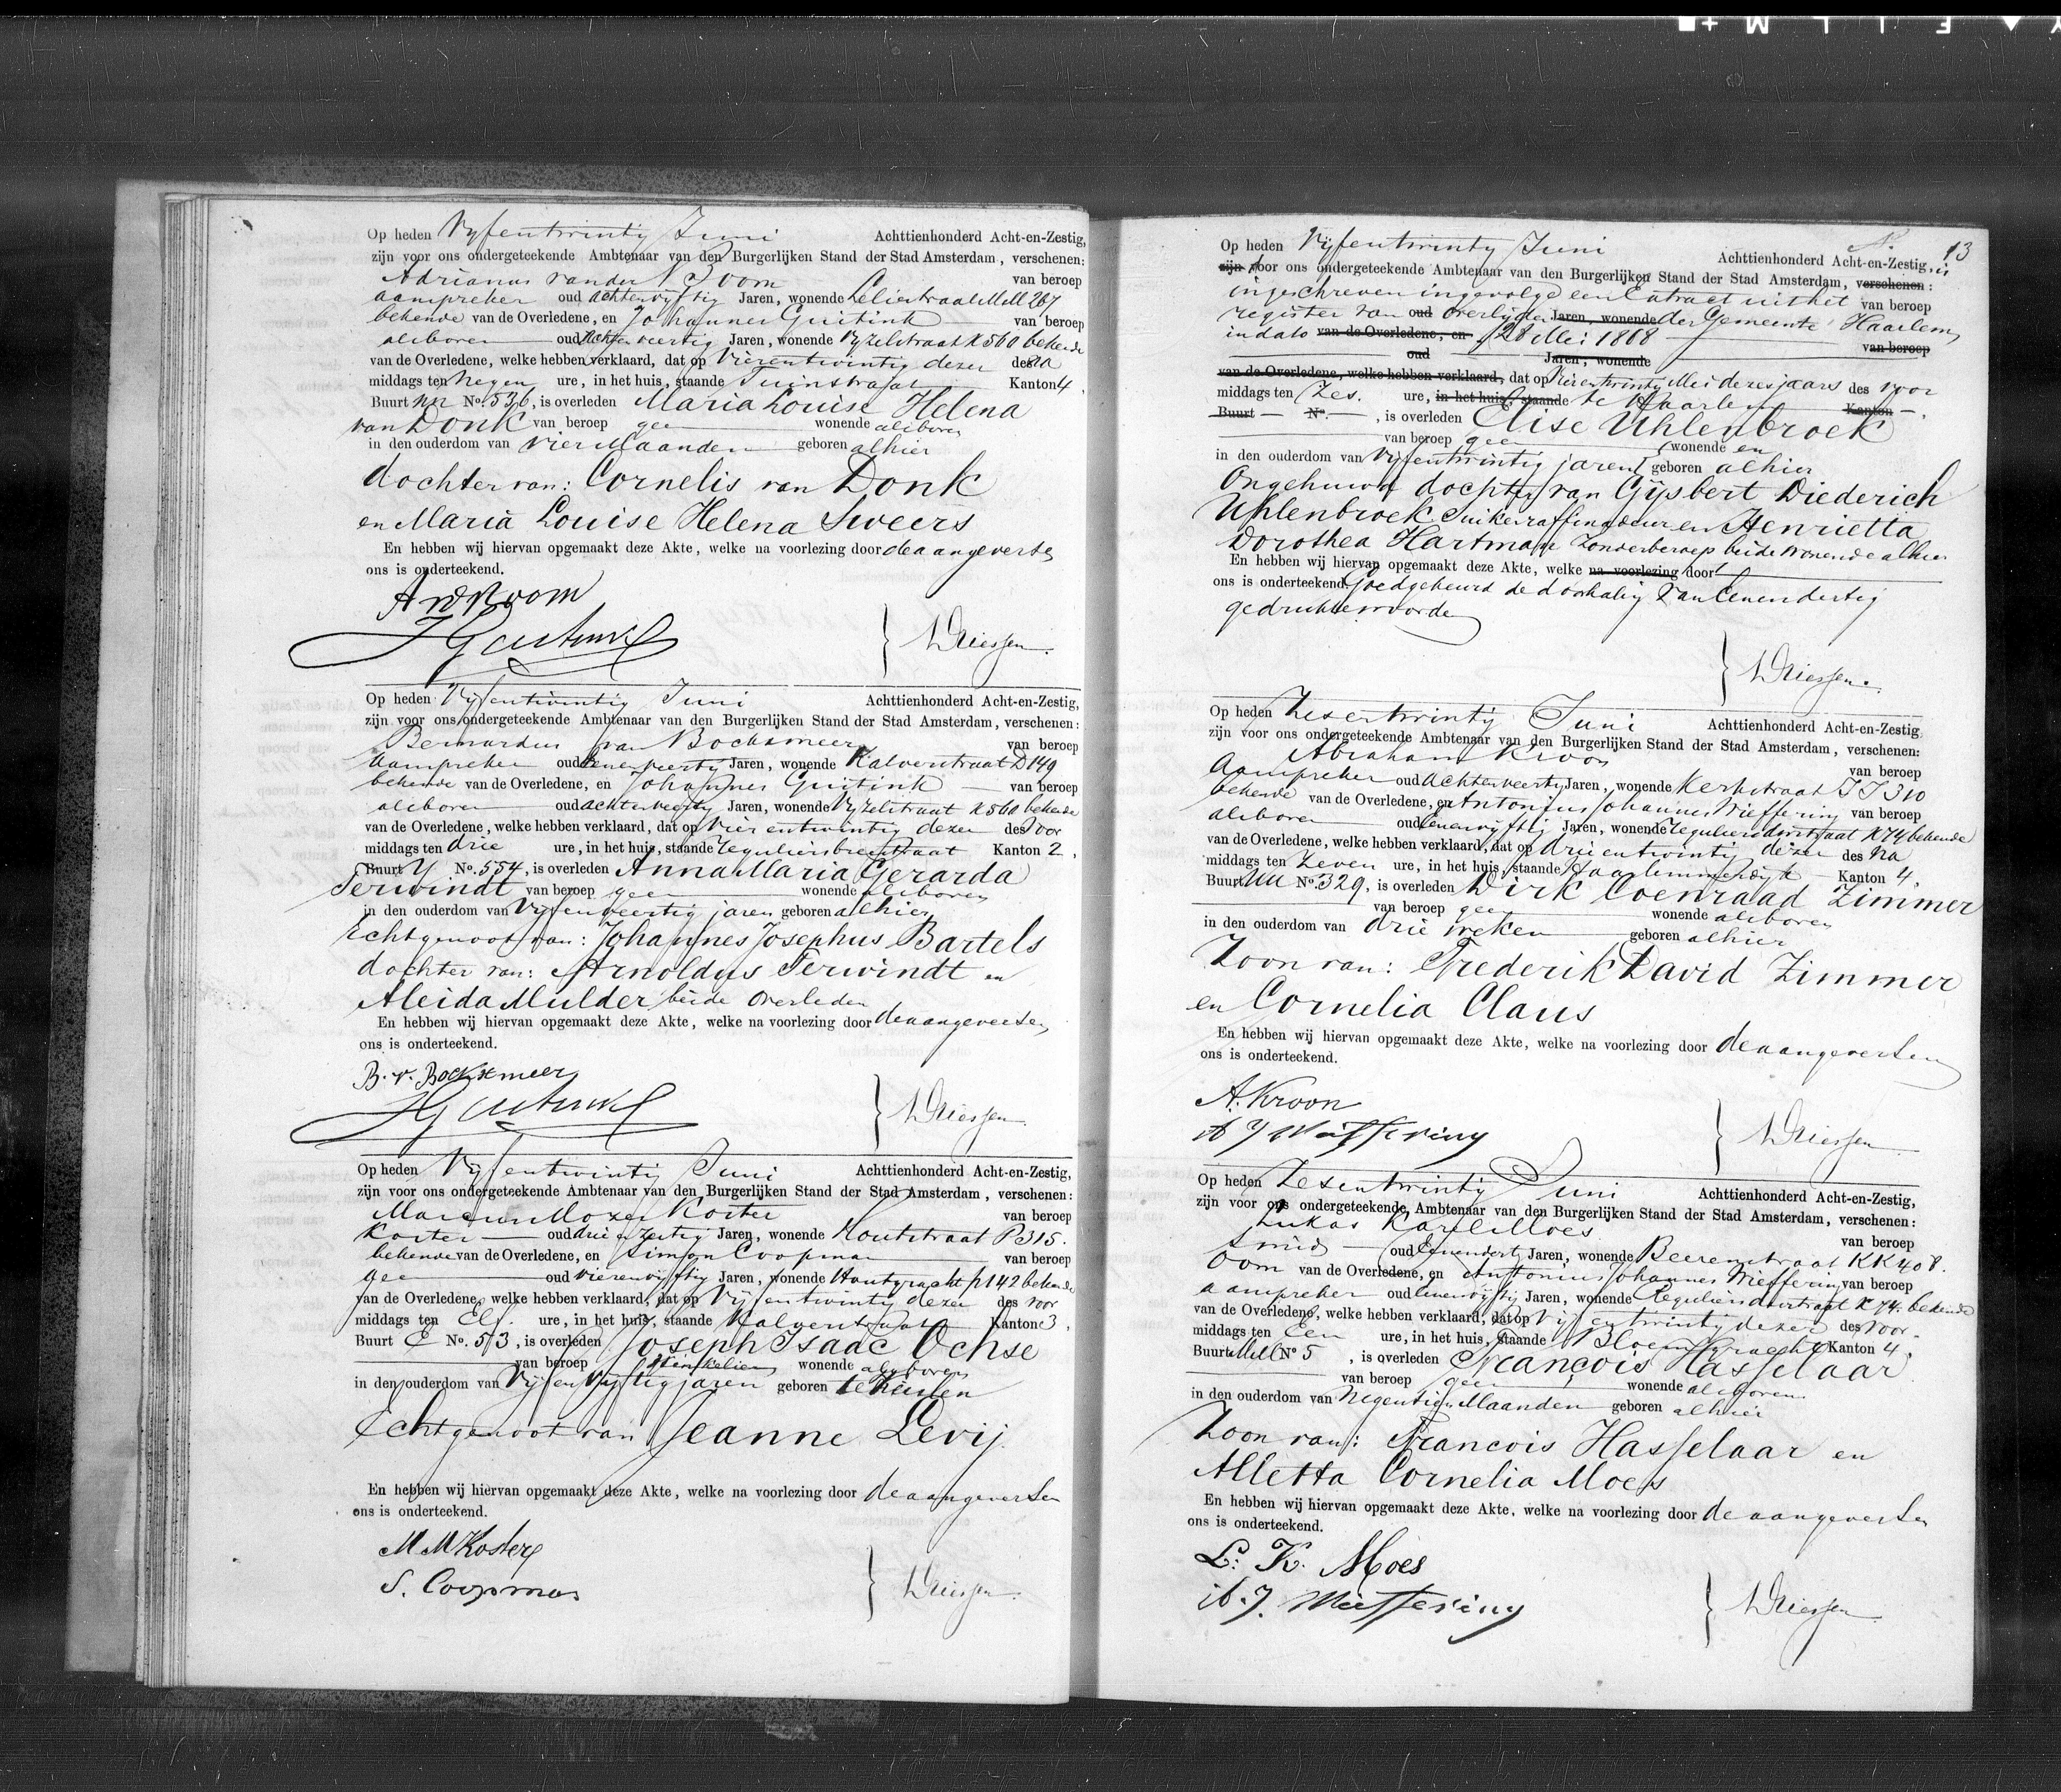 Op heden Vijfentwintig Juni Achttienhonderd Acht-en-Zestig,
zijn voor ons ondergeteekende Ambtenaar van den Burgerlijken Stand der Stad Amsterdam, verschenen:
Adrianus van der Noom van beroep
aanspreker oud achtenvyftig Jaren, wonende Leliestraat MM 267
bekende van de Overledene, en Johannes Guitink van beroep
alsboven oud Achtenveertig Jaren, wonende Vyzelstraat K 560 bekende
van de Overledene, welke hebben verklaard, dat op Vierentwintig dezer des na
middags ten negen ure, in het huis, staande Tuinstraat Kanton 4,
Buurt No. 536, is overleden Maria Louise Helena
van Donk van beroep geen wonende alsboven
in den ouderdom van vier Maanden geboren alhier
dochter van: Cornelis van Donk
en Maria Louise Helena Sweers
En hebben wij hiervan opgemaakt deze Akte, welke na voorlezing door de aangevers en
ons is onderteekend.
A vd Noom
Driessen.
Op heden Vijfentwintig Juni Achttienhonderd Acht-en-Zestig,
zijn voor ons ondergeteekende Ambtenaar van den Burgerlijken Stand der Stad Amsterdam, verschenen:
Bernardus van Bocksmeer van beroep
Aanspreker oud eenenveertig Jaren, wonende Kalverstraat D 149
bekende van de Overledene, en Johannes Guitink van beroep
alsboven oud achtenveertig Jaren, wonende Vyzelstraat K 560 bekende
van de Overledene, welke hebben verklaard, dat op Vierentwintig dezer des Voor
middags ten drie ure, in het huis, staande Reguliersbreestraat Kanton 2,
Buurt Y No. 554, is overleden Anna Maria Gerarda
Terwindt van beroep geen wonende alsboven
in den ouderdom van Vijfenveertig jaren geboren alhier
Echtgenoot van: Johannes Josephus Bartels
dochter van: Arnoldus Terwindt en
Aleida Mulder beide overleden
En hebben wij hiervan opgemaakt deze Akte, welke na voorlezing door de aangevers en
ons is onderteekend.
B. v. Bocksmeer
Driessen.
Op heden Vijfentwintig Juni Achttienhonderd Acht-en-Zestig,
zijn voor ons ondergeteekende Ambtenaar van den Burgerlijken Stand der Stad Amsterdam, verschenen:
Marcus Mozes Koster van beroep
Koster oud drie en zestig Jaren, wonende Houtstraat P 315.
bekende van de Overledene, en Simon Coopman van beroep
geen oud vierenvijftig Jaren, wonende Houtgracht P 142 bekende
van de Overledene, welke hebben verklaard, dat op Vijfentwintig dezer des voor
middags ten Elf ure, in het huis, staande Kalverstraat Kanton 3,
Buurt E No. 53, is overleden Joseph Isaac Ochse
van beroep Winkelier wonende alsboven
in den ouderdom van Vijfenvijftig jaren geboren te Keulen
Echtgenoot van Jeanne Levij
En hebben wij hiervan opgemaakt deze Akte, welke na voorlezing door de aangevers en
ons is onderteekend.
M M Koster
S. Coopman
Driessen.
13
Op heden Vijfentwintig Juni Achttienhonderd Acht-en-Zestig, is
zijn voor ons ondergeteekende Ambtenaar van den Burgerlijken Stand der Stad Amsterdam, verschenen:
ingeschreven ingevolge een Extract uit het van beroep
register van oud overlijden Jaren, wonende der Gemeente Haarlem,
in dato van de Overledene, en 28 Mei 1868 van beroep
oud Jaren, wonende
van de Overledene, welke hebben verklaard, dat op Vierentwintig Mei dezes jaars des voor
middags ten Zes. ure, in het huis, staande te Haarlem Kanton
Buurt No. , is overleden Elise Uhlenbroek
van beroep geen wonende en
in den ouderdom van Vijfentwintig jaren geboren alhier
Ongehuwd dochter van Gijsbert Diederich
Uhlenbroek Suikerraffinadeur en Henrietta
Dorothea Hartman zonder beroep beide wonende alhier
En hebben wij hiervan opgemaakt deze Akte, welke na voorlezing door
ons is onderteekend. Goedgekeurd de doorhaling van Eenendertig
gedrukte woorden
Driessen.
Op heden Zesentwintig Juni Achttienhonderd Acht-en-Zestig
zijn voor ons ondergeteekende Ambtenaar van den Burgerlijken Stand der Stad Amsterdam, verschenen:
Abraham Kroon van beroep
Aanspreker oud Achtenveertig Jaren, wonende Kerkstraat JJ 310
bekende van de Overledene, en Antonius Johannes Wieffering van beroep
alsboven oud eenenvijftig Jaren, wonende Reguliersdwarsstraat K 74 bekende
van de Overledene, welke hebben verklaard, dat op drieentwintig dezer des Na
middags ten Zeven ure, in het huis, staande Haarlemmerdijk Kanton 4,
Buurt No. 329, is overleden Dirk Coenraad Zimmer
van beroep geen wonende alsboven
in den ouderdom van drie weken geboren alhier
Zoon van: Frederik David Zimmer
en Cornelia Claus
En hebben wij hiervan opgemaakt deze Akte, welke na voorlezing door de aangevers en
ons is onderteekend.
A. Kroon
A J Wieffering
Driessen.
Op heden Zesentwintig Juni Achttienhonderd Acht-en-Zestig,
zijn voor ons ondergeteekende Ambtenaar van den Burgerlijken Stand der Stad Amsterdam, verschenen:
Lukas Karel Moes van beroep
Smid oud Eenendertig Jaren, wonende Beerenstraat KK 408.
Oom van de Overledene, en Antonius Johannes Wieffering van beroep
aanspreker oud eenenvijftig Jaren, wonende Reguliersdwarsstraat K 74. bekende
van de Overledene, welke hebben verklaard, dat op Vijfentwintig dezer des Voor-
middags ten Een ure, in het huis, staande Bloemgracht Kanton 4,
Buurt MM No 5, is overleden François Hasselaar
van beroep geen wonende alsboven
in den ouderdom van Negentien Maanden geboren alhier
Zoon van: Francois Hasselaar en
Alletta Cornelia Moes
En hebben wij hiervan opgemaakt deze Akte, welke na voorlezing door de aangevers en
ons is onderteekend.
L: K. Moes
A. J. Wieffering
Driessen.